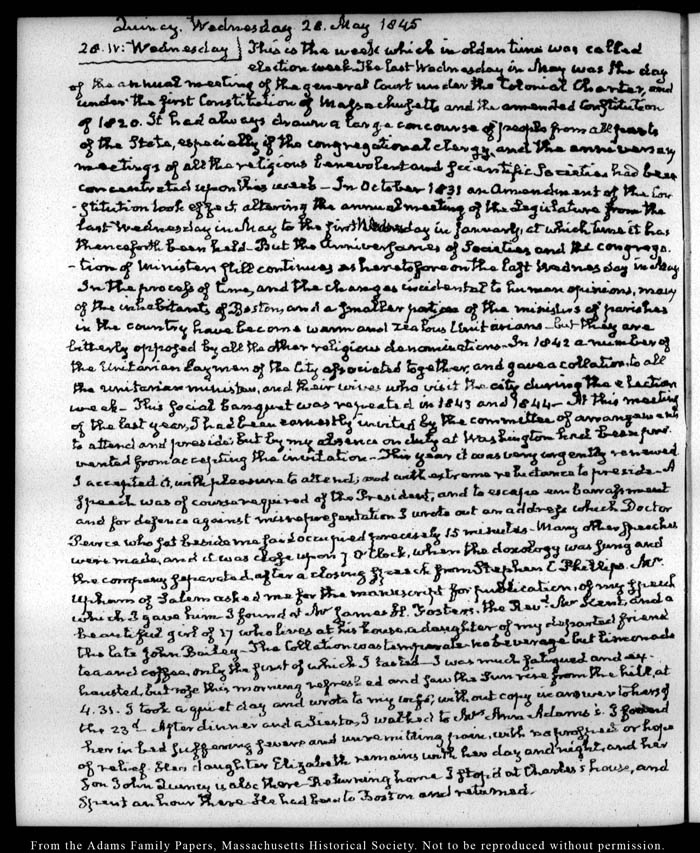 Quincy. Wednesday 28. May 1845
28. IV: Wednesday This is the week which in olden time was called
election week. The last Wednesday in May was the day
of the annual meeting of the general Court under the Colonial Charter, and
under the first Constitution of Massachusetts and the amended Constitution
of 1820. It had always drawn a large concourse of people from all parts
of the State, especially of the congregational clergy, and the anniversary
meetings of all the religious benevolent and Scientific Societies had been
concentrated upon this week — In October 1831 an Amendment of the Con-
-stitution took effect, altering the annual meeting of the Legislature from the
last Wednesday in May to the first Wednesday in January, at which time it has
thenceforth been held. But the Anniversaries of Societies and the congrega-
-tion of Ministers still continues as heretofore on the last Wednesday in May
In the process of time, and the changes incidental to human opinions, many
of the inhabitants of Boston, and a smaller portion of the ministers of parishes
in the country have become warm and zealous Unitarians — but they are
bitterly opposed by all the other religious denominations. In 1842 a number of
the Unitarian Laymen of the City associated together, and gave a collation, to all
the unitarian ministers, and their wives who visit the city during the election
week — This social banquet was repeated in 1843 and 1844 — At this meeting
of the last year, I had been earnestly invited by the committee of arrangements
to attend and preside: but by my absence on duty at Washington had been pre-
vented from accepting the invitation — This year it was very urgently renewed
I accepted it, with pleasure to attend; and with extreme reluctance to preside — A
Speech was of course required of the President, and to escape embarrassment
and for defence against misrepresentation I wrote out an address which Doctor
Peirce who sat beside me said occupied precisely 15 minutes. Many other speeches
were made, and it was close upon 7 O'Clock, when the doxology was sung and
the company separated, after a closing speech from Stephen C Phillips. Mr
Upham of Salem asked me for the manuscript for publication, of my speech
which I gave him I found at Mr James H. Foster's, the Revd Mr Kent, and a
beautiful girl of 17 who lives at his house, a daughter of my departed friend
the late John Bailey — The Collation was temperate no beverage but limonade
tea and coffee, only the first of which I tasted — I was much fatigued and ex-
hausted, but rose this morning refreshed and saw the Sun rise from the hill, at
4.31. I took a quiet day and wrote to my wife; without copy in answer to hers of
the 23d. After dinner and a Siesta, I walked to Mrs Ann Adams's. I found
her in bed suffering fever and unremitting pain, with no prospect or hope
of relief. Her daughter Elizabeth remains with her day and night, and her
Son John Quincy is also there Returning home I stop'd at Charles's house, and
spent an hour there He had been to Boston and returned.
From the Adams Family Papers, Massachusetts Historical Society. Not to be reproduced without permission.